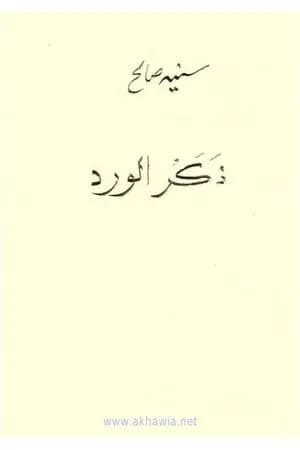 سنيه صالح
ذَكَرْ الورد
www.akhawia.net